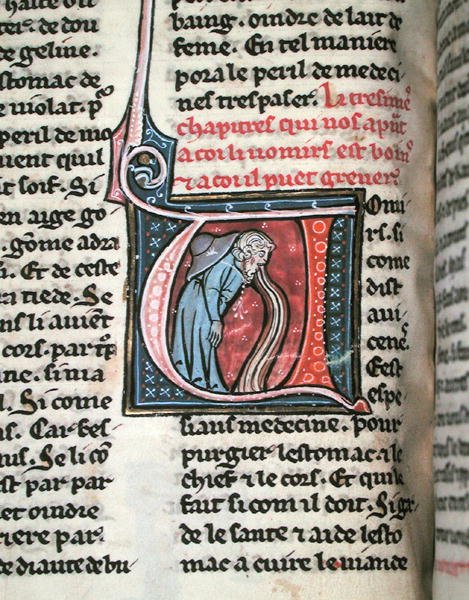 haite ou
ter. de dou
de geline.
stomac de
e uiolat. p⁹
peril de mo
uient quil
t soif. Si
rn aige go
. gōme adra
i. Et de ceste
ra tiede. Se
ns li auient
cors. par
ine. si nia
l. Si come
s. Car bes
nus. Se li cō
est par par
et oindre
riere par.
de diaute de bu
baing. oindre de lait de
feme. En tel maniere
pora le peril de medeci
nes trespasser. Li tresime
chapitres qui nos aprēt
a coi li uomirs est boins
⁊ a coi il puet greuer.
Uomi
rs. si
come
dist
aui
cene.
Eest
espe
sians medecine. pour
purgier lestomac ⁊ le
chief ⁊ le cors. Et qui le
fait si com il doit. Si gar
de le sante ⁊ aide lesto
mac a cuire le uiande